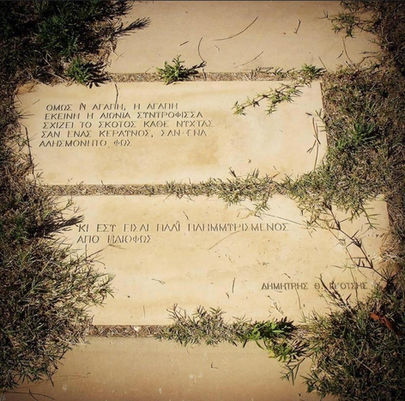 ΟΜΩΣ Η ΑΓΑΠΗ, Η ΑΓΑΠΗ
ΕΚΕΙΝΗ Η ΑΙΩΝΙΑ ΣΥΝΤΡΟΦΙΣΣΑ
ΣΧΙΖΕΙ ΤΟ ΣΚΟΤΟΣ ΚΑΘΕ ΝΥΧΤΑΣ
ΣΑΝ ΕΝΑΣ ΚΕΡΑΥΝΟΣ, ΣΑΝ ΕΝΑ
ΑΛΗΣΜΟΝΗΤΟ ΦΩΣ
ΚΙ ΕΣΥ ΕΙΣΑΙ ΠΑΛΙ ΠΛΗΜΜΥΡΙΣΜΕΝΟΣ
ΑΠΟ ΗΛΙΟΦΩΣ
ΔΗΜΗΤΡΗΣ Θ.